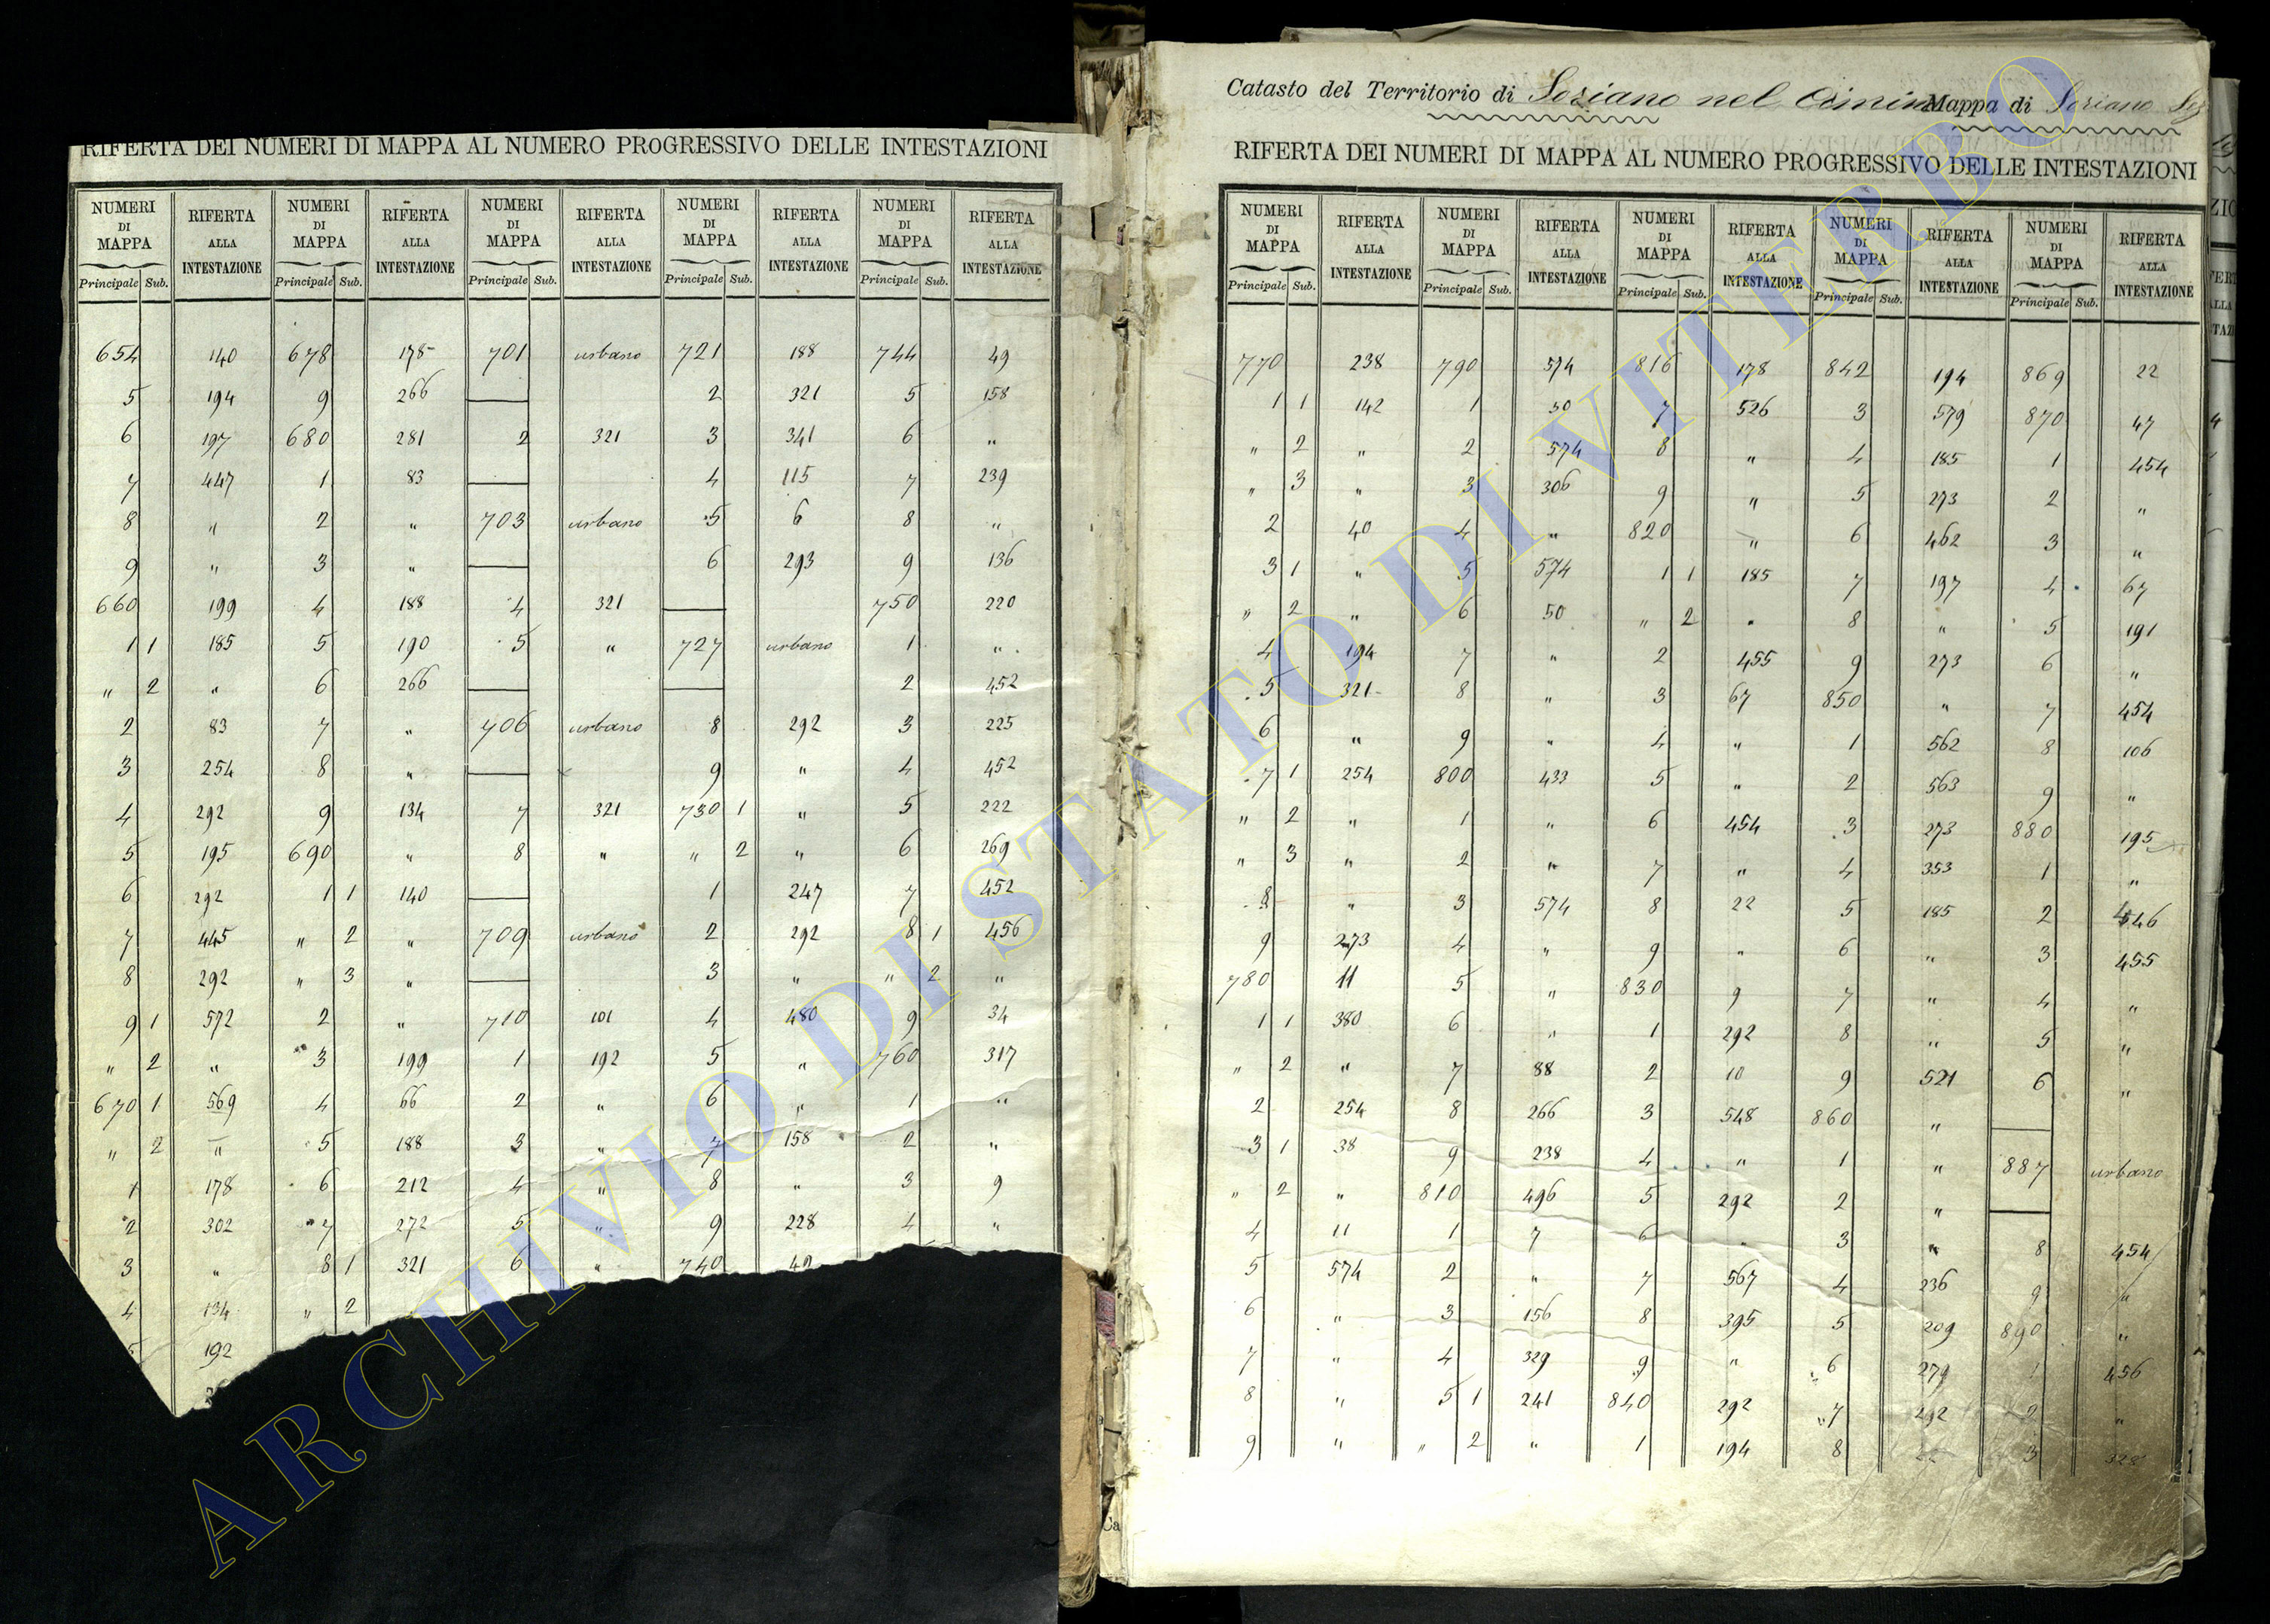 RIFERTA DEI NUMERI DI MAPPA AL NUMERO PROGRESSIVO DELLE INTESTAZIONI
NUMERI DI MAPPA RIFERTA ALLA INTESTAZIONE NUMERI DI MAPPA RIFERTA ALLA INTESTAZIONE NUMERI DI MAPPA RIFERTA ALLA INTESTAZIONE NUMERI DI MAPPA RIFERTA ALLA INTESTAZIONE NUMERI DI MAPPA RIFERTA ALLA INTESTAZIONE
Principale Sub. Principale Sub. Principale Sub. Principale Sub. Principale Sub.
654 140 678 178 701 urbano 721 188 744 49
5 194 9 266 2 321 5 158
6 197 680 281 2 321 3 341 6 "
7 447 1 83 4 115 7 239
8 " 2 " 703 urbano 5 6 8 "
9 " 3 " 6 293 9 136
660 199 4 188 4 321 750 220
1 1 185 5 190 5 " 727 urbano 1 "
" 2 " 6 266 2 452
2 83 7 " 706 urbano 8 292 3 225
3 254 8 " 9 " 4 452
4 292 9 134 7 321 730 1 " 5 222
5 195 690 " 8 " " 2 " 6 269
6 292 1 1 140 1 247 7 452
7 445 " 2 " 709 urbano 2 292 8 1 456
8 292 " 3 " 3 " " 2 "
9 1 572 2 " 710 101 4 480 9 34
" 2 " 3 199 1 192 5 " 760 317
670 1 569 4 66 2 " 6 " 1 "
" 2 " 5 188 3 " 7 158 2 "
1 178 6 212 4 " 8 " 3 9
2 302 7 272 5 " 9 228 4 "
3 " 8 1 321 6 " 740
4 134 " 2
5 192
Catasto del Territorio di Soriano nel Cimino Mappa di Soriano
RIFERTA DEI NUMERI DI MAPPA AL NUMERO PROGRESSIVO DELLE INTESTAZIONI
NUMERI DI MAPPA RIFERTA ALLA INTESTAZIONE NUMERI DI MAPPA RIFERTA ALLA INTESTAZIONE NUMERI DI MAPPA RIFERTA ALLA INTESTAZIONE NUMERI DI MAPPA RIFERTA ALLA INTESTAZIONE NUMERI DI MAPPA RIFERTA ALLA INTESTAZIONE
Principale Sub. Principale Sub. Principale Sub. Principale Sub. Principale Sub.
770 238 790 574 816 178 842 194 869 22
1 1 142 1 50 7 526 3 579 870 47
" 2 " 2 574 8 " 4 185 1 454
" 3 " 3 306 9 " 5 273 2 "
2 40 4 " 820 " 6 462 3 "
3 1 " 5 574 1 1 185 7 197 4 67
" 2 " 6 50 " 2 " 8 " 5 191
4 194 7 " 2 455 9 273 6 "
5 321 8 " 3 67 850 " 7 454
6 " 9 " 4 " 1 562 8 106
7 1 254 800 433 5 " 2 563 9 "
" 2 " 1 " 6 454 3 273 880 195
" 3 " 2 " 7 " 4 353 1 "
8 " 3 574 8 22 5 185 2 546
9 273 4 " 9 " 6 " 3 455
780 11 5 " 830 9 7 " 4 "
1 1 380 6 " 1 292 8 " 5 "
" 2 " 7 88 2 10 9 521 6 "
2 254 8 266 3 548 860 "
3 1 38 9 238 4 " 1 " 887 urbano
" 2 " 810 496 5 292 2 "
4 11 1 7 6 " 3 " 8 454
5 574 2 " 7 567 4 236 9 "
6 " 3 156 8 395 5 209 890 "
7 " 4 329 9 " 6 279 1 456
8 " 5 1 241 840 292 7 292 2 "
9 " " 2 " 1 194 8 3 328
ARCHIVIO DI STATO DI VITERBO